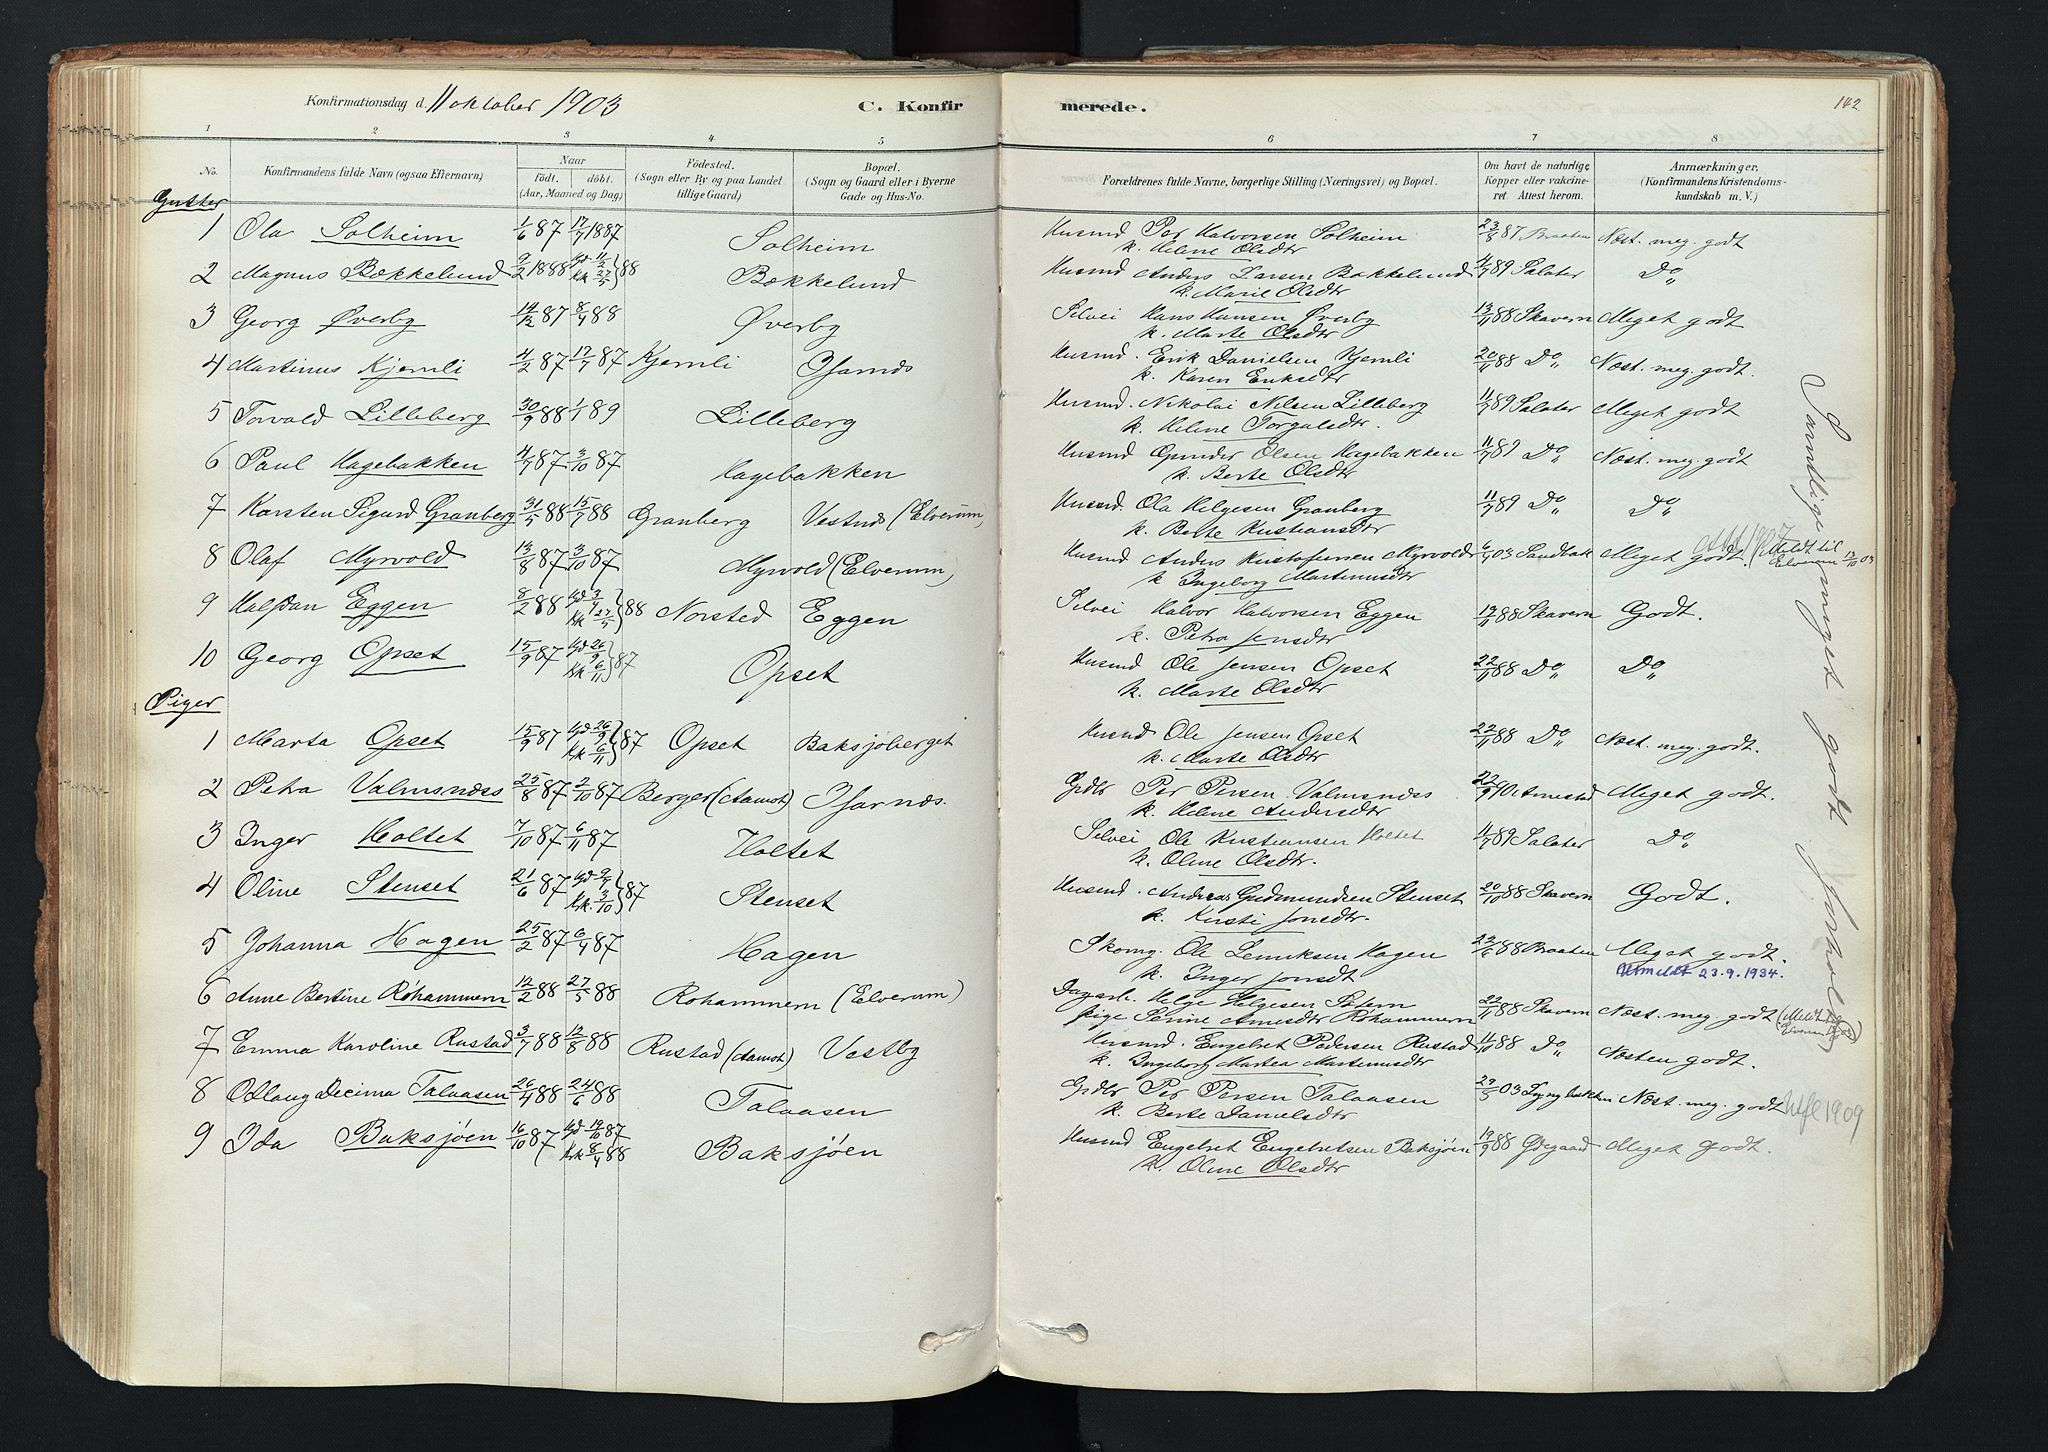 Konfirmationsdag d. 11 oktober 1903 C. Konfirmerede. 142
1 2 3 4 5 6 7 8
No. Konfirmandens fulde Navn (ogsaa Efternavn) Naar födt. döbt. (Aar, Maaned og Dag) Födested. (Sogn eller By og paa Landet tillige Gaard) Bopæl. (Sogn og Gaard eller i Byerne Gade og Hus-No. Forældrenes fulde Navne, borgerlige Stilling (Næringsvei) og Bopæl. Om havt de naturlige Kopper eller vakcineret. Attest herom. Anmærkninger, (Konfirmandens Kristendomskundskab m. V.)
Gutter
1 Ola Solheim 1/6 87 17/7 1887 Solheim Husmd Per Halvorsen Solheim 23/8 87 Braaten Næst. meg. godt
k. Helene Olsdtr
2 Magnus Bækkelund 9/2 1888 Gd 11/2 kk 27/5 } 88 Bækkelund Husmd Anders Larsen Bækkelund 4/7 89 Salater Do
k. Marie Olsdtr
3 Georg Øverby 14/12 87 8/4 88 Øverby Selvei Hans Hansen Øverby 13/11 88 Skavern Meget godt
k. Marte Olsdtr
4 Martinus Kjernli 4/2 87 17/7 87 Kjernli Osarnds Husmd. Erik Danielsen Kjernli 20/11 88 Do Næst. meg. godt.
k. Karen Eriksdtr
5 Torvald Lilleberg 30/9 88 1/1 89 Lilleberg Husmd. Nikolai Nilsen Lilleberg 11/7 89 Salater Meget godt
k. Helene Torgalsdtr.
6 Paul Hagebakken 4/7 87 3/10 87 Hagebakken Husmd Gunder Olsen Hagebakken 11/7 89 Do Næst. meg. godt
k. Berte Olsdtr
7 Karsten Sigurd Granberg 31/5 88 15/7 88 Granberg Vestnds (Elverum) Husmd. Ola Helgesen Granberg 11/7 89 Do Do
k. Berte Kristiansdtr
8 Olaf Myrvold 13/8 87 3/10 87 Myrvold (Elverum) Husmd Anders Kristofersen Myrvold 6/9 03 Sandbak Meget godt. (Meldt til Elverum 13/10 03
k Ingeborg Martinusdtr
9 Halfdan Eggen 8/2 88 Gd 3/4 kk 27/5 } 88 Norsted Eggen Selvei Halvor Halvorsen Eggen 19/11 88 Skavern Godt.
k. Petra Jensdtr
10 Georg Opset 15/9 87 Gd 26/9 kk 6/11 } 87 Opset Husmd Ole Jensen Opset 22/11 88 Do Do
k. Marte Olsdtr
Piger
1 Marta Opset 15/9 87 Gd 26/9 kk 6/11 } 87 Opset Baksjøberget Husmd Ole Jensen Opset 22/11 88 Do Næst. meg. godt.
k. Marte Olsdtr
2 Petra Valmsnæss 25/8 87 2/10 87 Berger (Aamot) Osarnæs. Grdbr Per Persen Valmsnæs 22/9 90 Arnestad Meget godt.
k. Helene Andersdtr
3 Inger Holtet 7/10 87 6/11 87 Holtet Selvei Ole Kristiansen Holtet 4/7 89 Salater Do
k. Oline Olsdtr.
4 Oline Stenset 21/6 87 Gd 9/7 kk. 3/10 } 87 Stenset Husmd. Andreas Gudmundsen Stenset 20/10 88 Skavern Godt.
k. Kirsti Jonsdtr.
5 Johanna Hagen 25/2 87 6/4 87 Hagen Skomg. Ole Henriksen Hagen 23/6 88 Braaten Meget godt.
k. Inger Jonsdt Utmeldt 23.9.1934.
6 Anne Bertine Røhammern 12/2 88 27/5 88 Rohammern (Elverum) Dagarb. Helge Helgesen 22/11 88 Skavern Næst. meg. godt (Meldt til Elverum
pige Serine Arnesdtr Røhammern
7 Emma Karoline Rustad 3/7 88 12/8 88 Rustad (Aamot) Vestby Husmd. Engebret Pedersen Rustad 11/10 88 Do Næsten godt.
k. Ingeborg Martea Martinusdtr
8 Odlaug Decima Talaasen 26/4 88 24/6 88 Talaasen Grdbr Per Persen Talaasen 23/5 03 Lyngbakken Næst. meg. godt Utfl 1909
k. Berte Danielsdtr
9 Ida Baksjøen 16/10 87 Gd 19/10 87 kk 8/4 88 Baksjøen Husmd Engebret Engebretsen Baksjøen 19/9 88 Ødegaard Meget godt.
k. Oline Olsdtr
Att 1907
Samtlige meget godt forhold